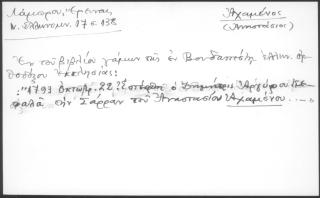 Λάμπρου, Ἔρευναι
Ν. Ἑλληνομν. 17 σ. 138
Ἀχαμένος
(Ἀναστάσιος)
Ἐκ τοῦ βιβλίου γάμων τῆς ἐν Βουδαπέστῃ ἑλλην. ὀρθοδόξου ἐκκλησίας:
"1793 Ὀκτωβρ. 22. ὁ Δημήτρις Ἀργύρου
τὴν Σάρραν τοῦ Ἀναστασίου Ἀχαμένου....."